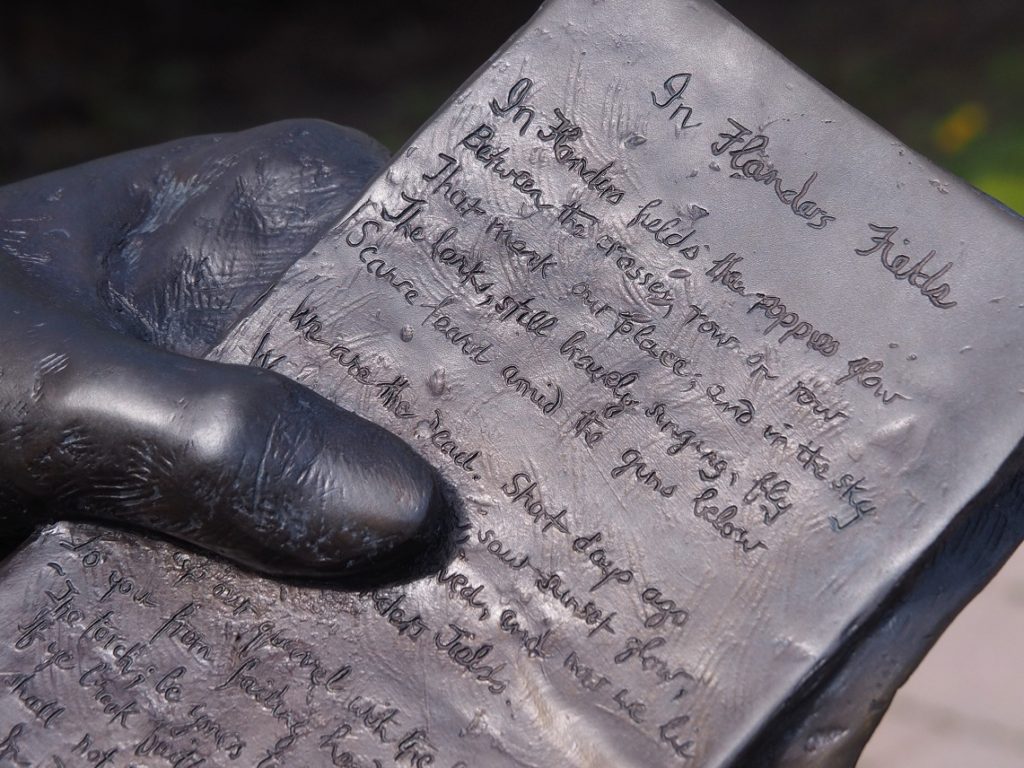 In Flanders Fields
In Flanders fields the poppies blow
Between the crosses, row on row
That mark our place; and in the sky
The larks, still bravely singing, fly
Scarce heard amid the guns below
We are the Dead. Short days ago
saw sunset glow,
ved, and now we lie
ders Fields.
up our quarrel with the
To you from failing ha
The torch; be yours
If ye break faith
shall not